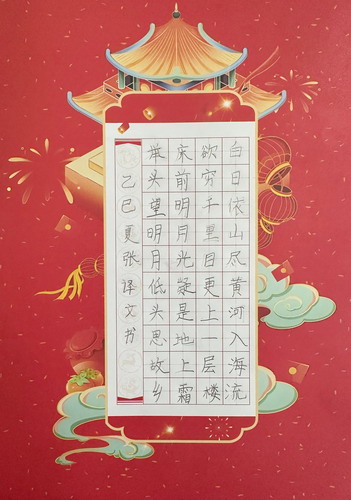 白日依山尽黄河入海流
欲穷千里目更上一层楼
床前明月光疑是地上霜
举头望明月低头思故乡
乙巳夏张译文书